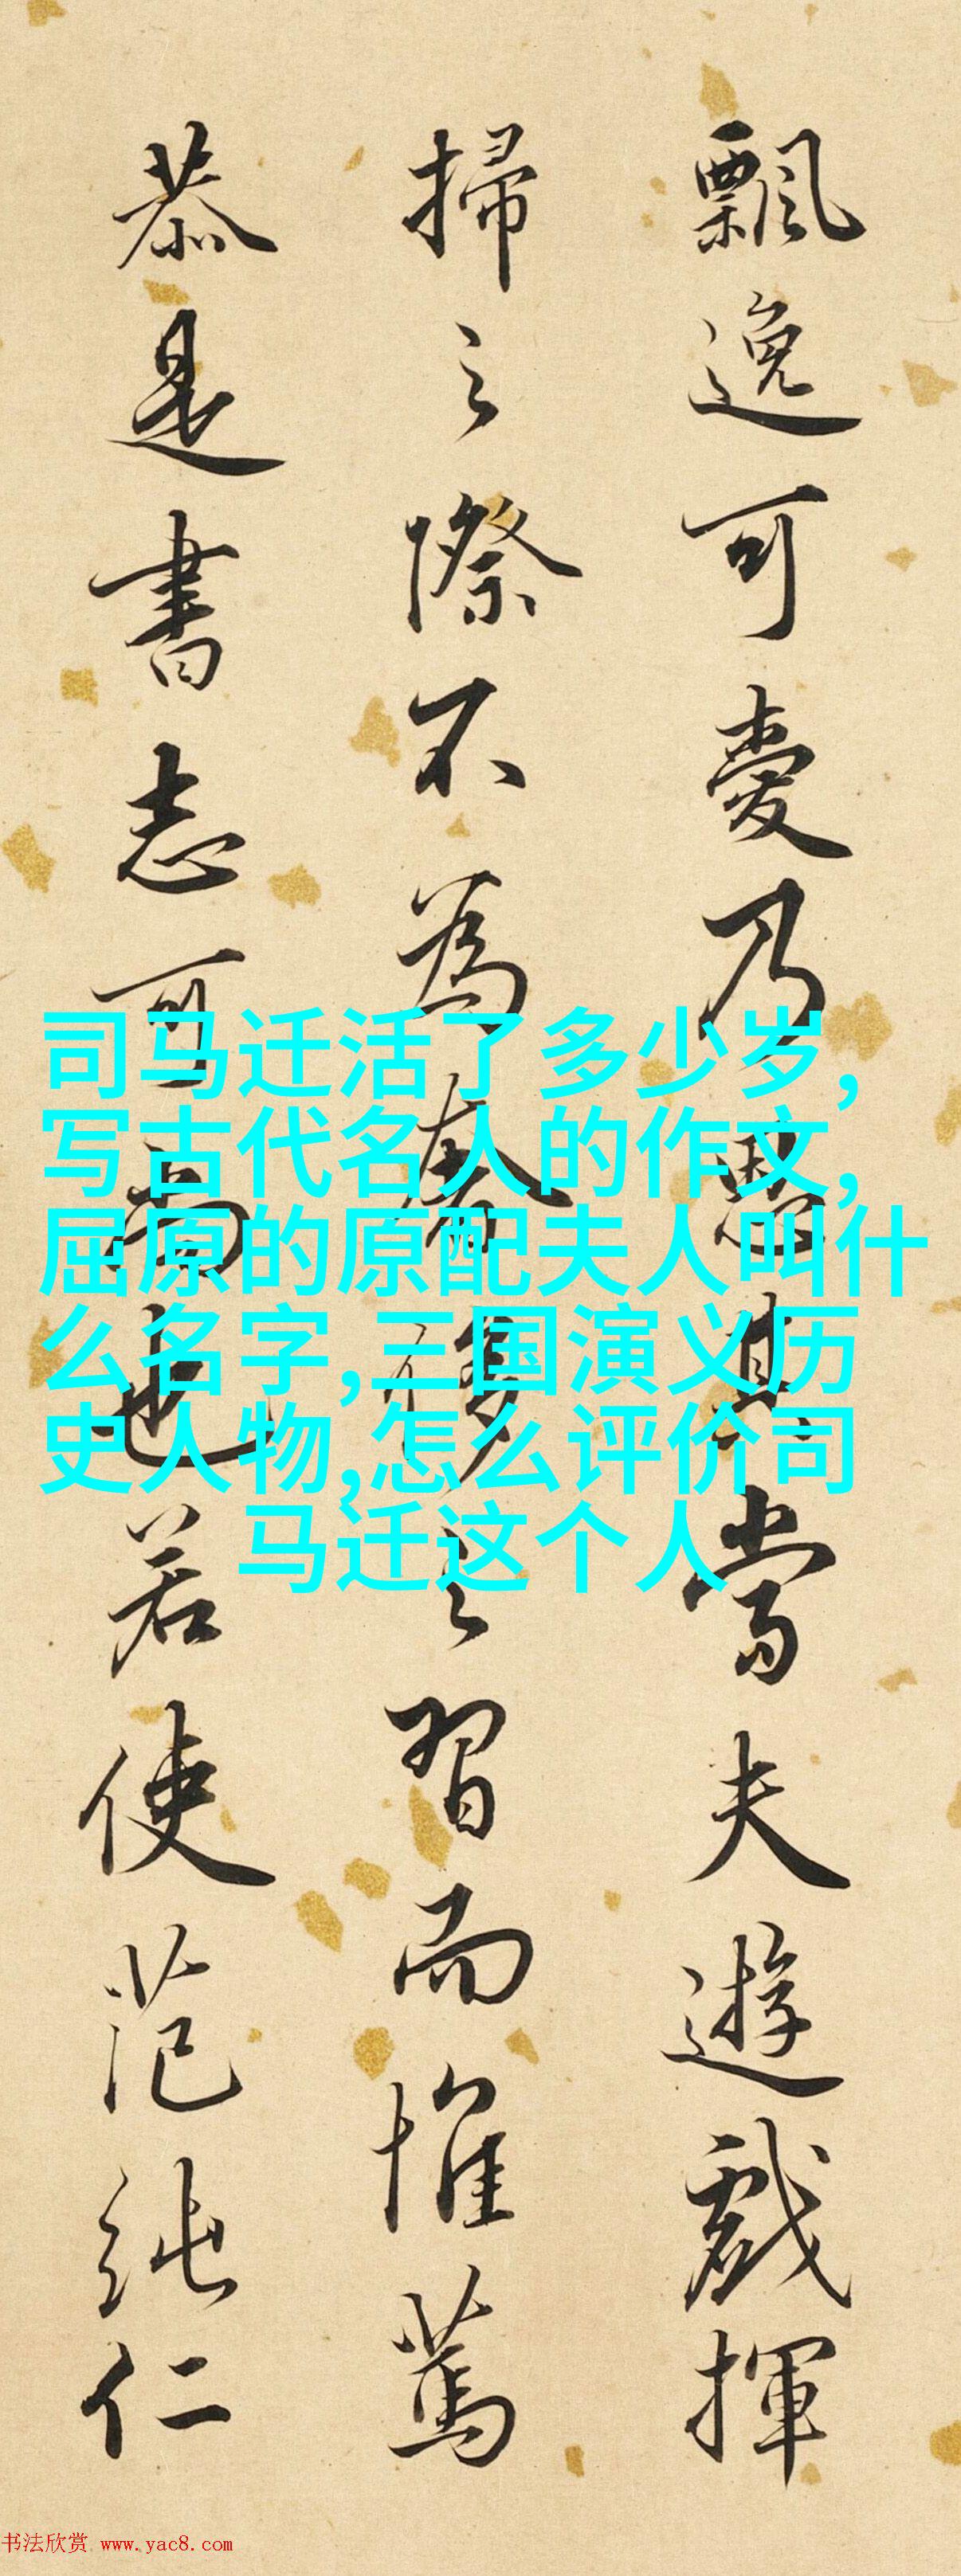 飄逸可愛乃思其當夫遊戲揮
掃之際不為奢侈之習而惟篤
恭是書志可尚也若使范純仁
司马迁活了多少岁,
写古代名人的作文,
屈原的原配夫人叫什
么名字,三国演义历
史人物,怎么评价司
马迁这个人
书法欣赏 www.yac8.com